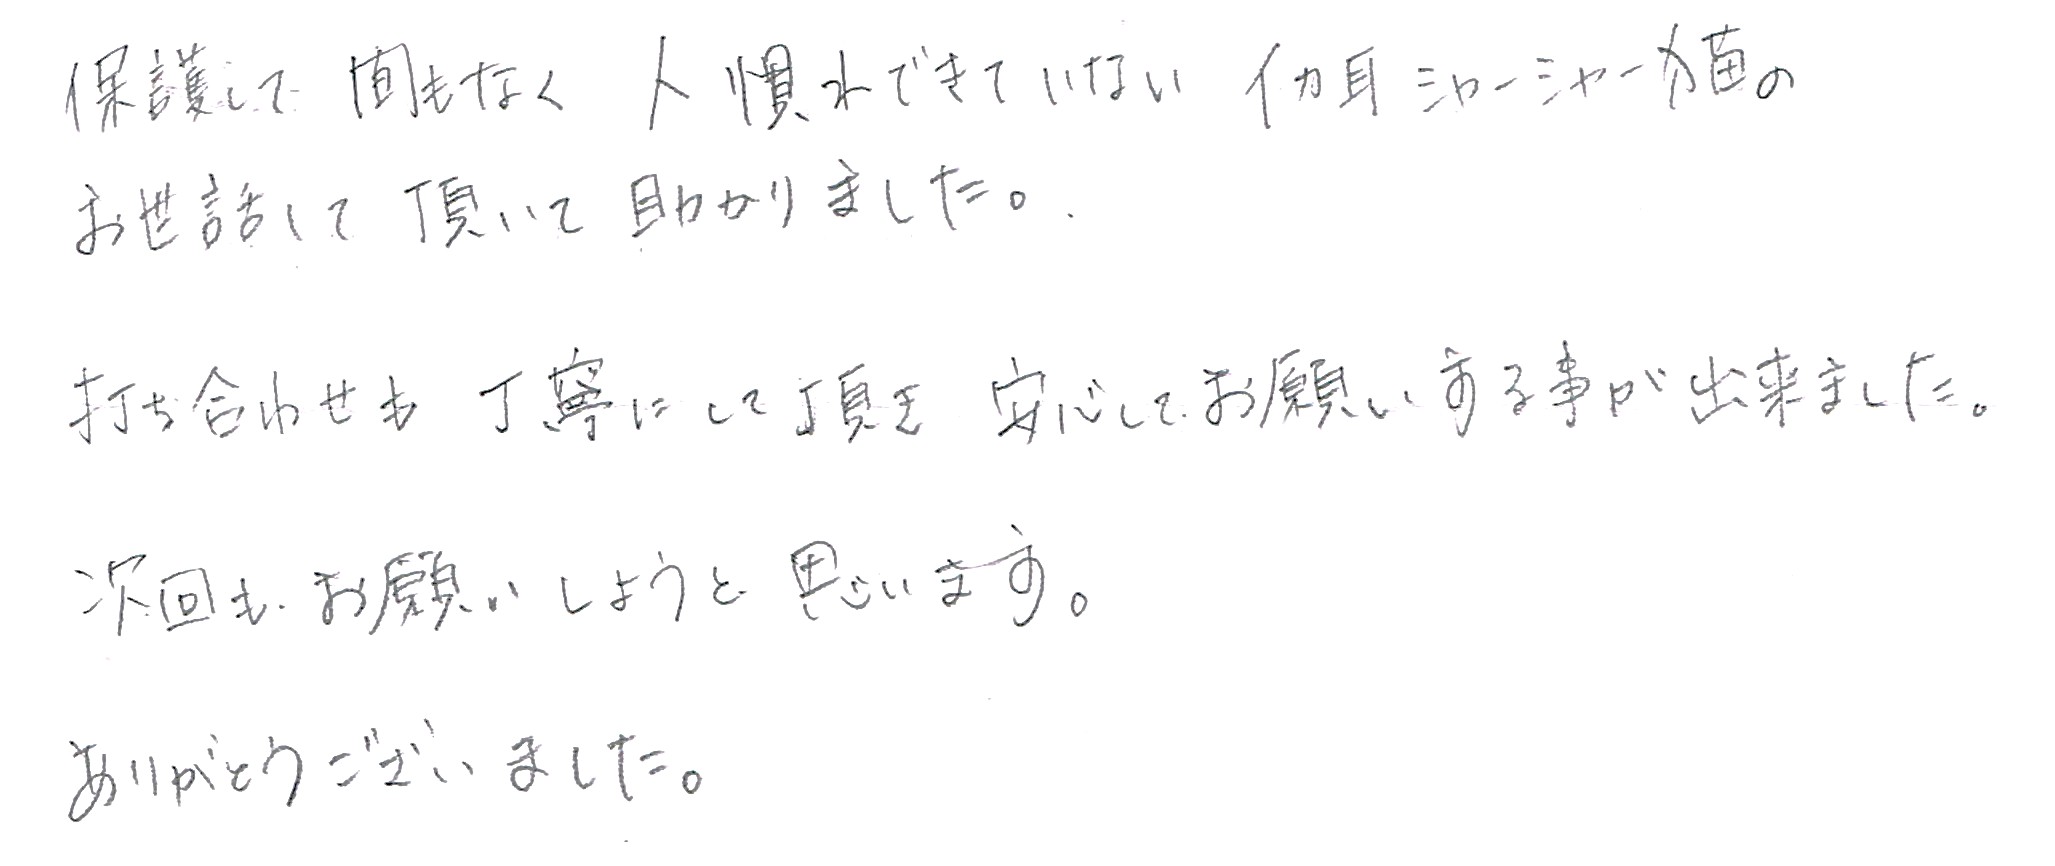 保護して間もなく人慣れできていないイカ耳シャーシャー猫の
お世話して頂いて助かりました。
打ち合わせも丁寧にして頂き安心してお願いする事が出来ました。
次回もお願いしようと思います。
ありがとうございました。